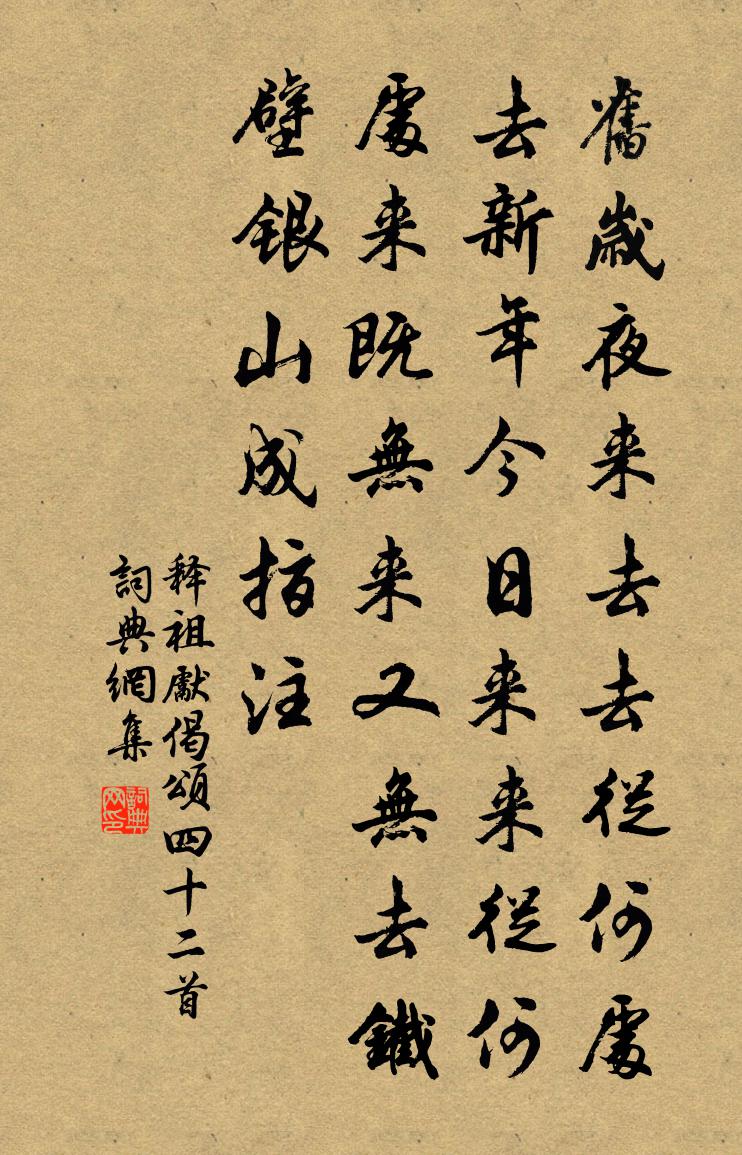 舊歲夜来去去從何處
去新年今日来来從何
處来既無来又無去鐵
壁銀山成指注
释祖獻偈頌四十二首
詞典網集
詞典网印